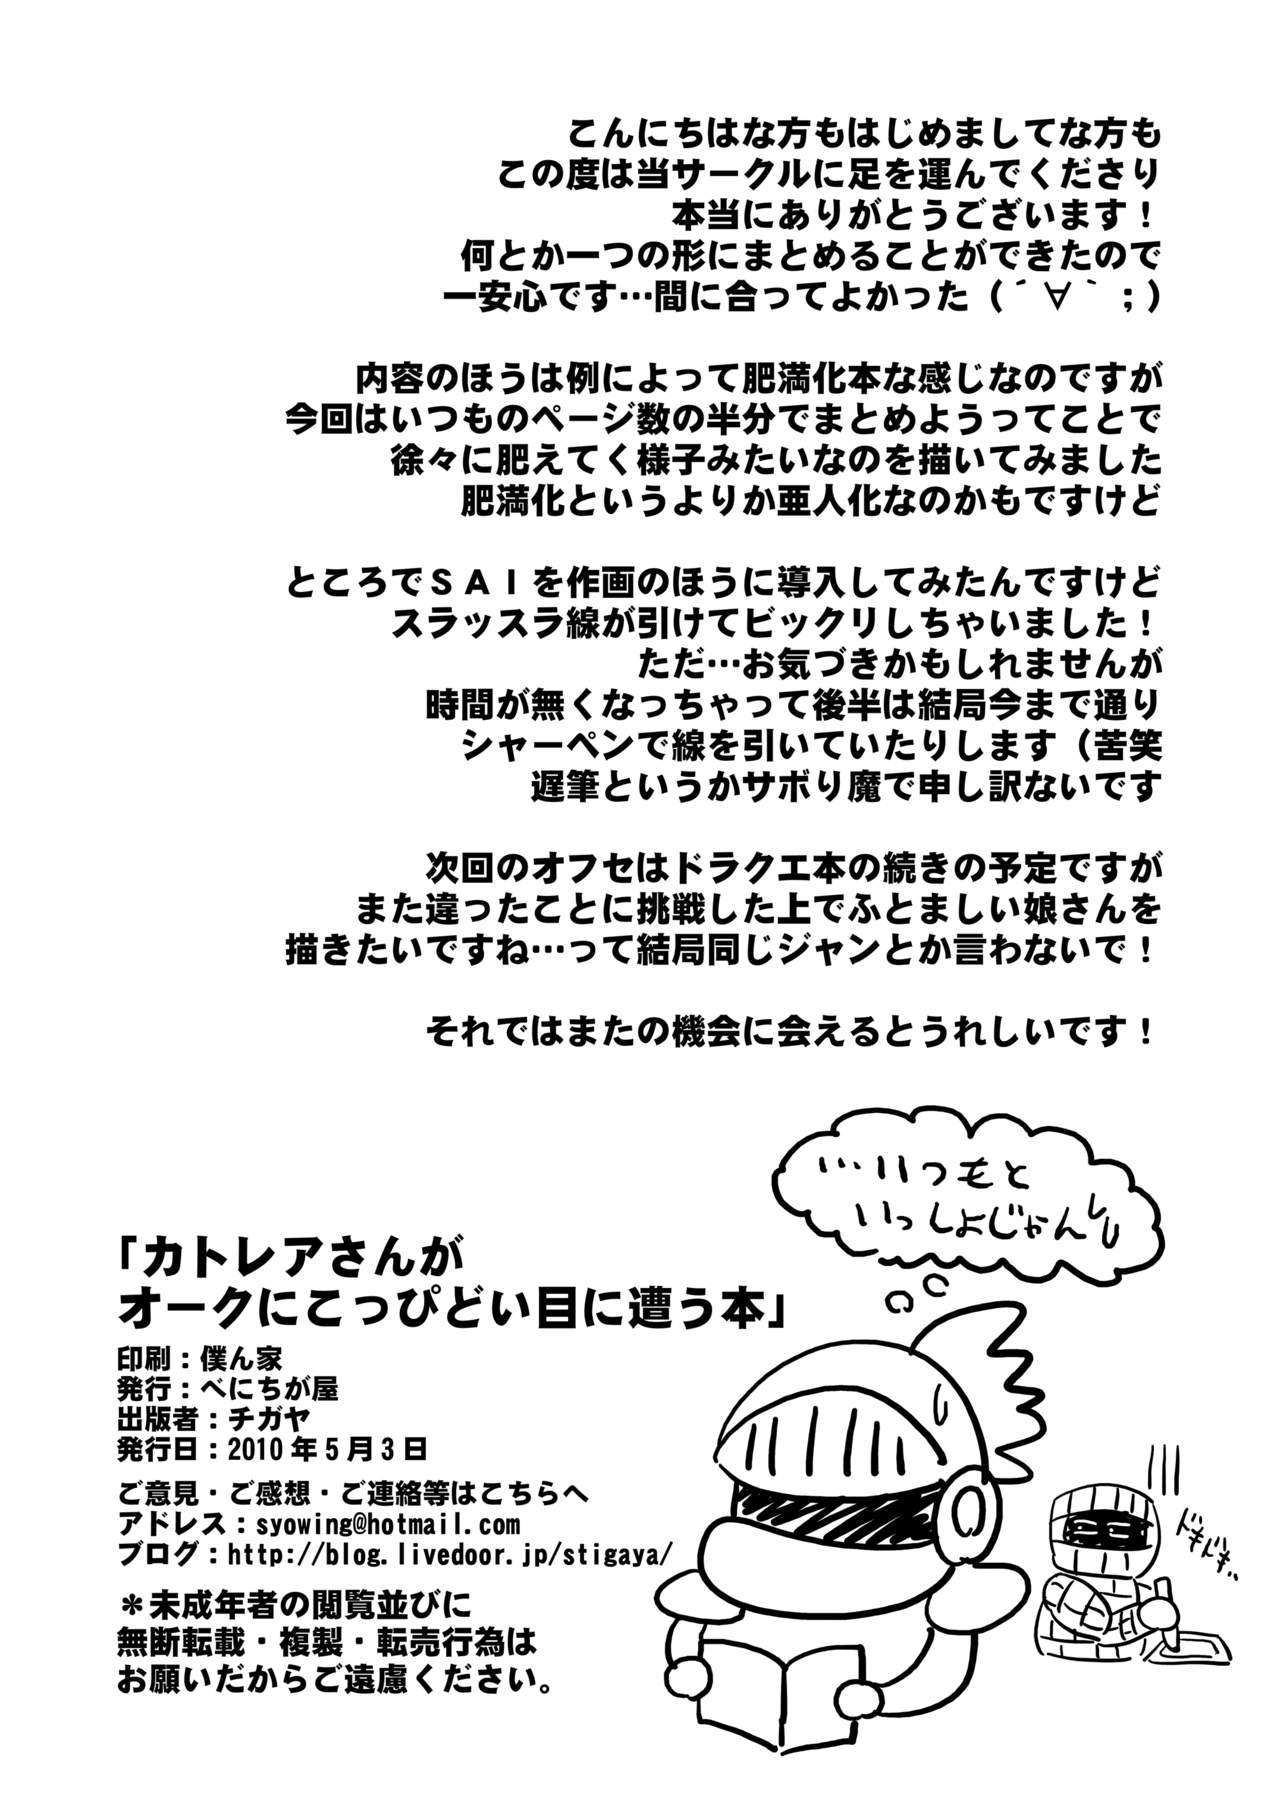 こんにちはな方もはじめましてな方も
この度は当サークルに足を運んでくださり
本当にありがとうございます！
何とか一つの形にまとめることができたので
一安心です…間に合ってよかった（´∀｀；）
内容のほうは例によって肥満化本な感じなのですが
今回はいつものページ数の半分でまとめようってことで
徐々に肥えてく様子みたいなのを描いてみました
肥満化というよりか亜人化なのかもですけど
ところでＳＡＩを作画のほうに導入してみたんですけど
スラッスラ線が引けてビックリしちゃいました！
ただ…お気づきかもしれませんが
時間が無くなっちゃって後半は結局今まで通り
シャーペンで線を引いていたりします（苦笑
遅筆というかサボり魔で申し訳ないです
次回のオフセはドラクエ本の続きの予定ですが
また違ったことに挑戦した上でふとましい娘さんを
描きたいですね…って結局同じジャンとか言わないで！
それではまたの機会に会えるとうれしいです！
…いつもと
いっしょじゃん
「カトレアさんが
オークにこっぴどい目に遭う本」
印刷：僕ん家
発行：べにちが屋
出版者：チガヤ
発行日：2010年5月3日
ご意見・ご感想・ご連絡等はこちらへ
アドレス：syowing@hotmail.com
ブログ：http://blog.livedoor.jp/stigaya/
＊未成年者の閲覧並びに
無断転載・複製・転売行為は
お願いだからご遠慮ください。
ドキドキ..